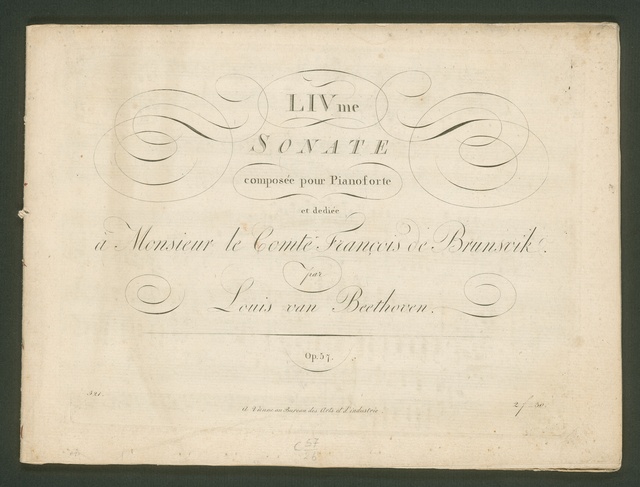 LIVme
SONATE
composée pour Pianoforte
et dediée
à Monsieur le Comte François de Brunsvik.
par
Louis van Beethoven.
Op. 57.
521.
2 f 30
A Vienne au Bureau des Arts et d'industrie
C 57